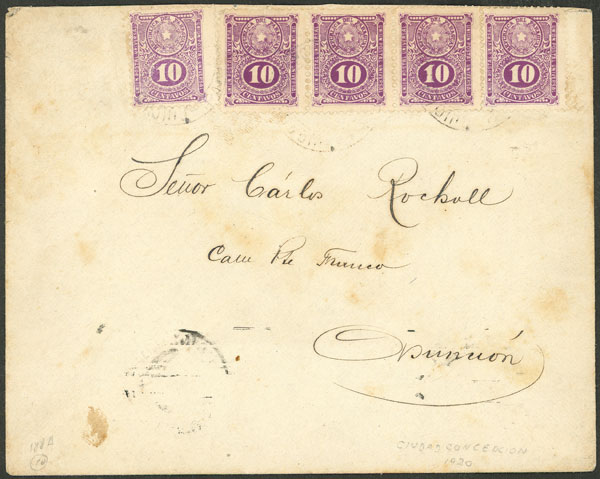 10 10 10 10 10
CENTAVOS CENTAVOS CENTAVOS CENTAVOS CENTAVOS
Señor Cárlos Rockoll
Calle Pte Franco
Asunción
CIUDAD CONCEPCION
1920